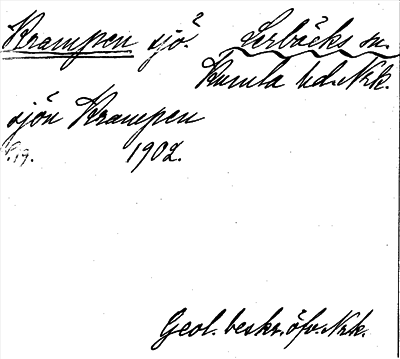 Krampen sjö. Lerbäcks sn.
Kumla hd. Nrk.
sjön Krampen
s. 19. 1902.
Geol. beskr. öfv. Nrk.